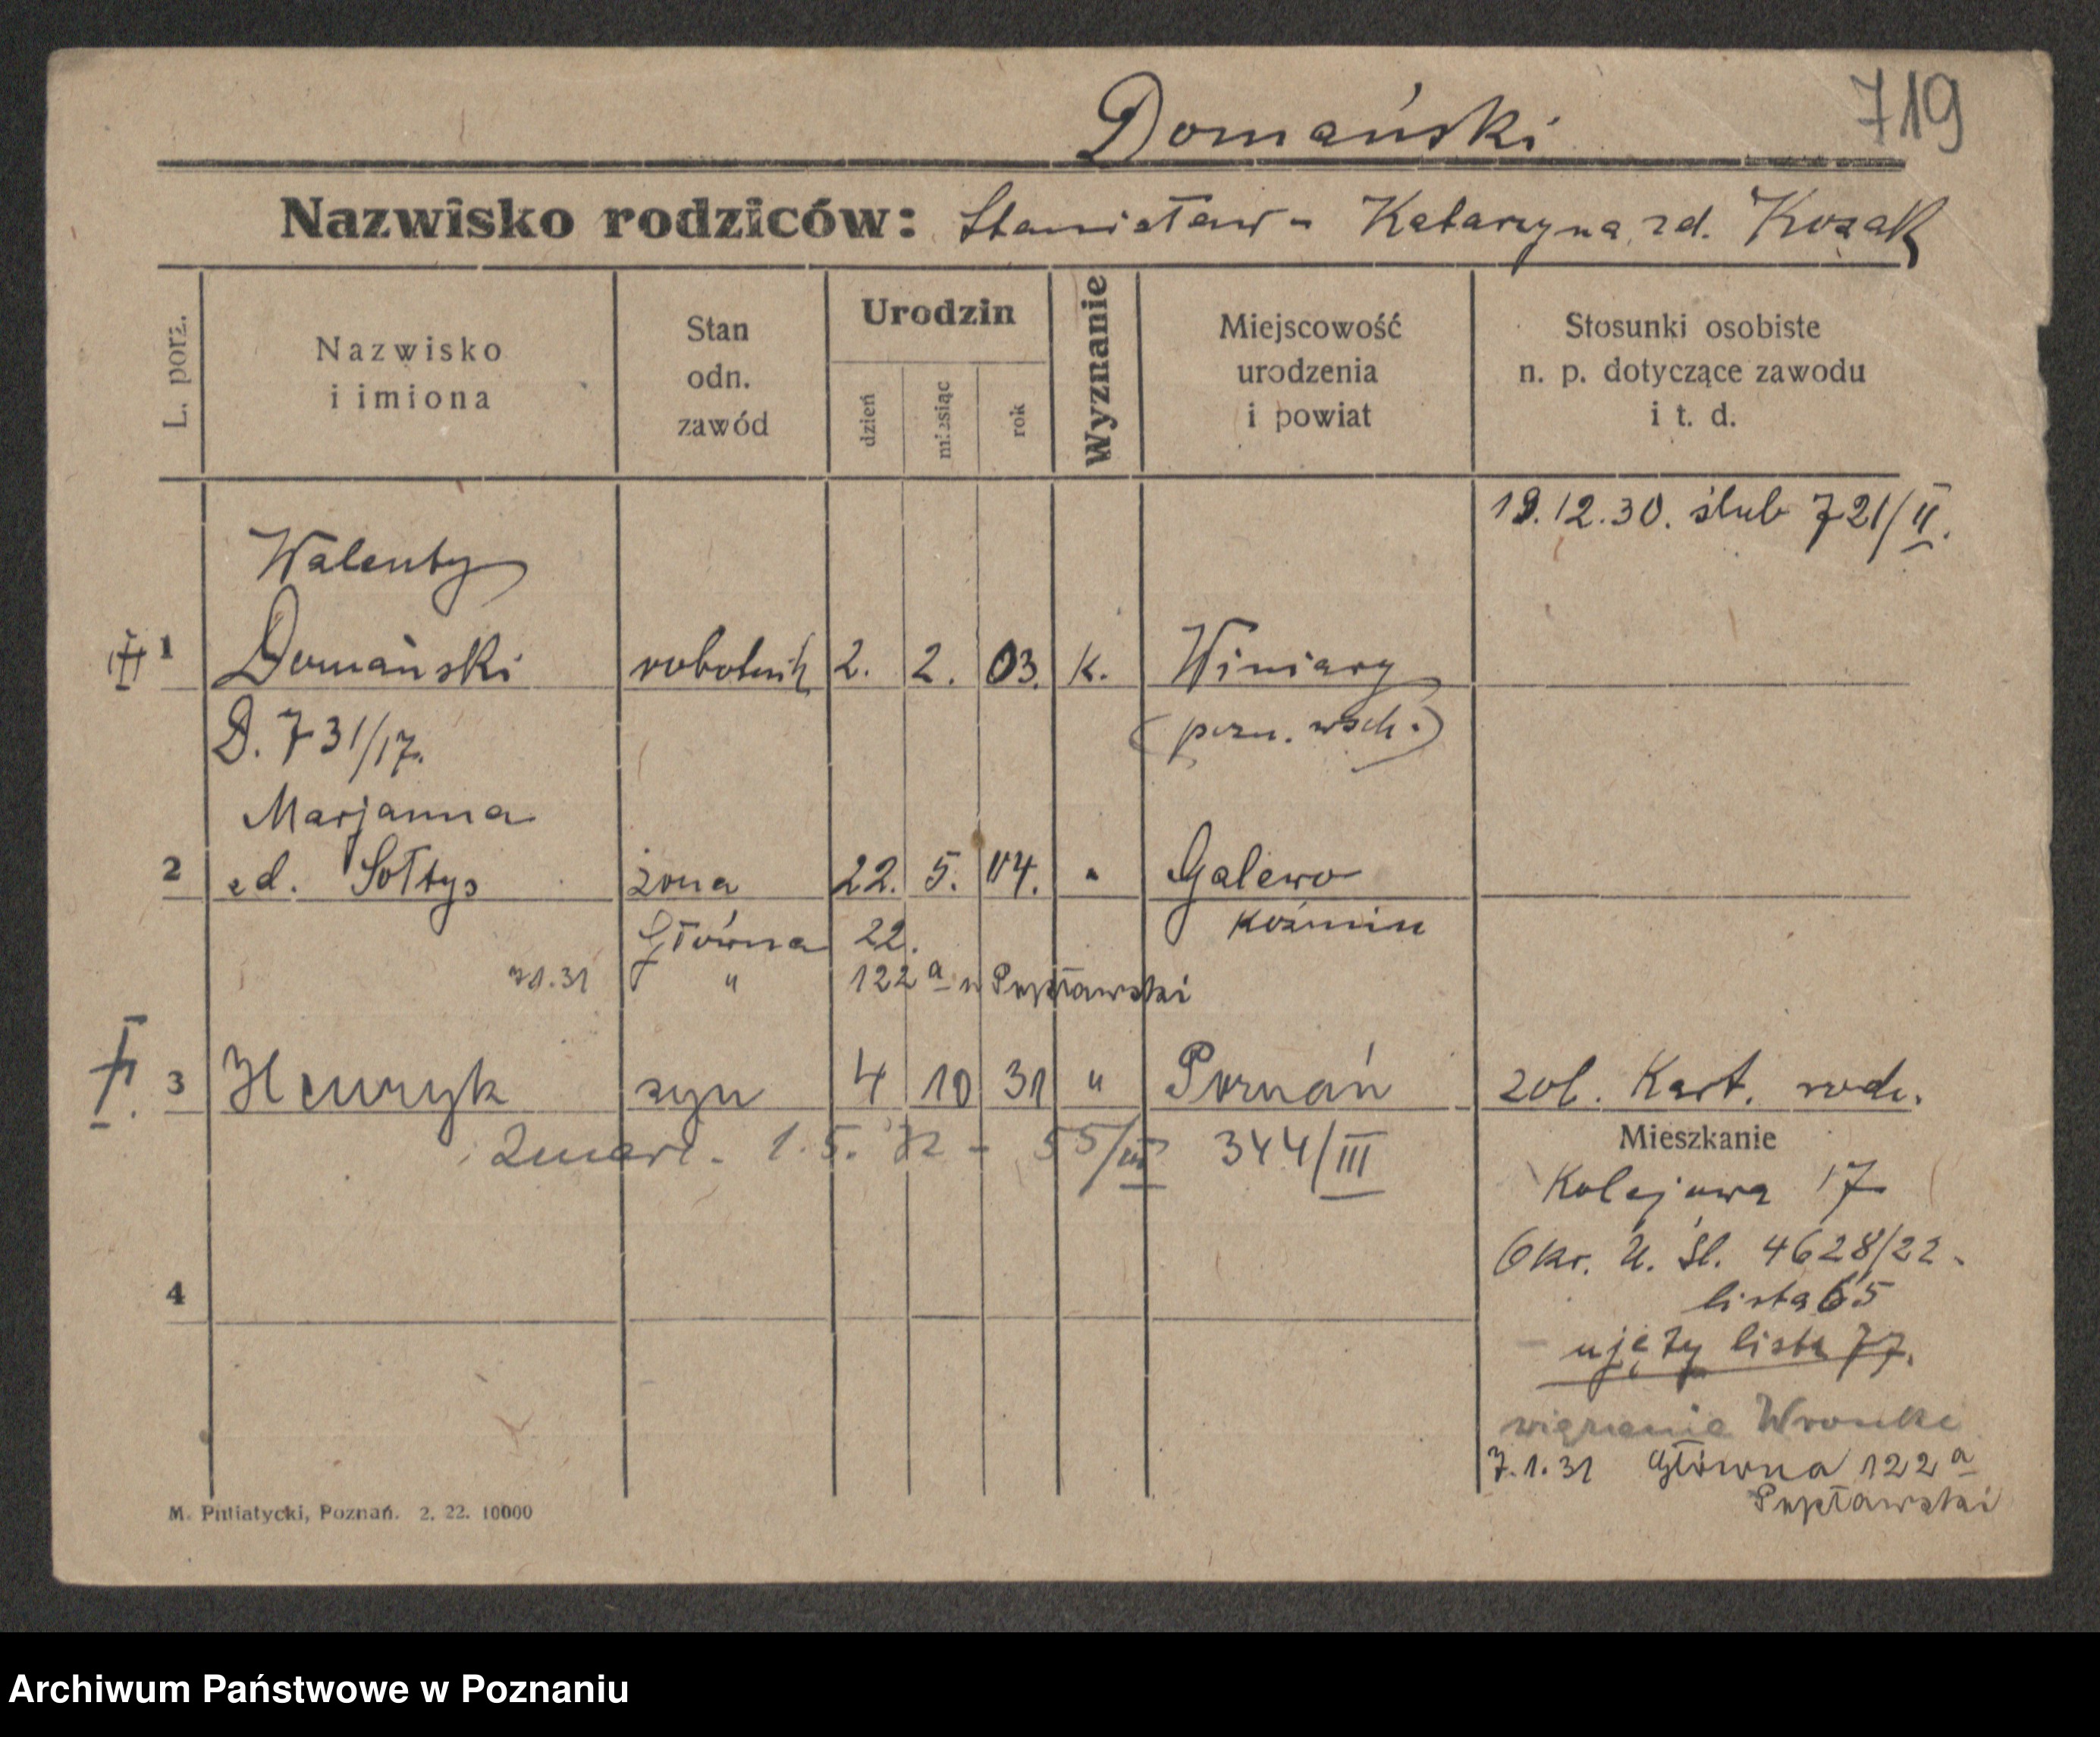 719
Domański
Nazwisko rodziców: Stanisław - Katarzyna zd. Kozak
L. porz.
Nazwisko
i imiona
Stan
odn.
zawód
Urodzin
dzień
miesiąc
rok
Wyznanie
Miejscowość
urodzenia
i powiat
Stosunki osobiste
n. p. dotyczące zawodu
i t. d.
19.12.30. ślub 721/II.
Walenty
1 Domański robotnik 2. 2. 03. k. Winiary
D. 731/17. (pozn. wsch.)
Marjanna
2 zd. Sołtys żona 22. 5. 04. " Galewo
Koźmin
Główna 22.
7.1.31 " 122a u Pupławski
3 Henryk syn 4 10 31 " Poznań zob. Kart. rodz.
Zmarł. 1.5.32 - 55/III 344/III
Mieszkanie
Kolejowa 17
Okr. U. Śl. 4628/22-
lista 65
4
- ujęty lista 77.
więzienie Wronke
7.1.31 Główna 122a
Pupławski
M. Putiatycki, Poznań. 2. 22. 10000
Archiwum Państwowe w Poznaniu